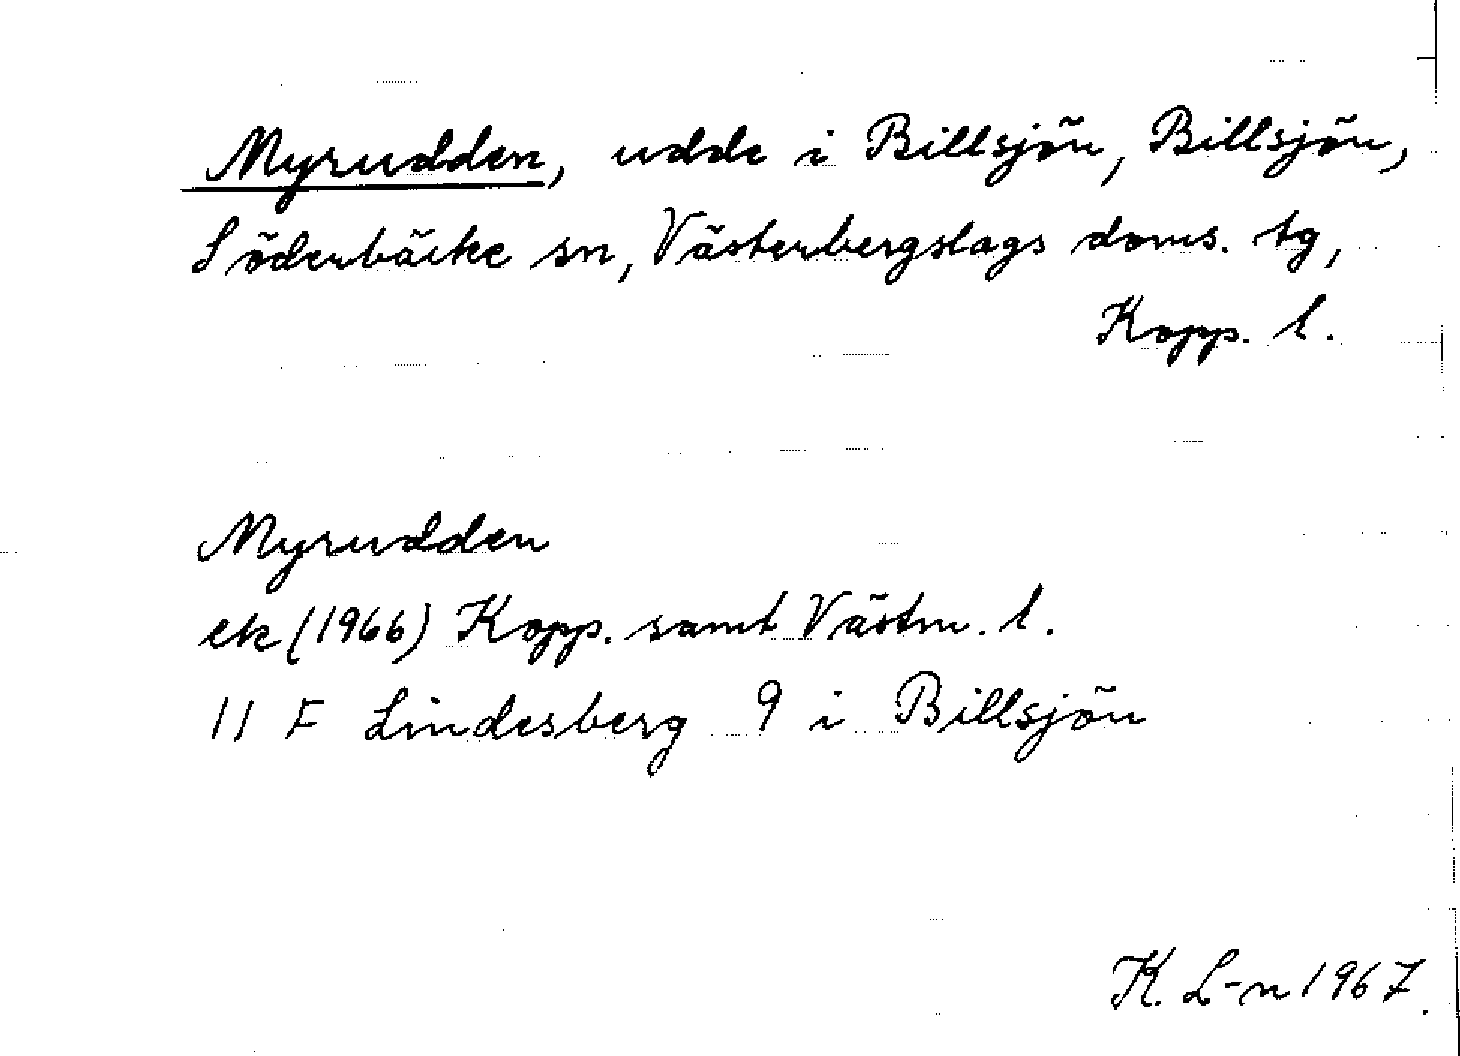 Myrudden, udde i Billsjön, Billsjön,
Söderbäcke sn, Västerbergslags doms. tg,
Kopp. l.
Myrudden
ek (1966) Kopp. samt Västm. l.
11 F Lindesberg 9 i Billsjön
K. L-n 1967.